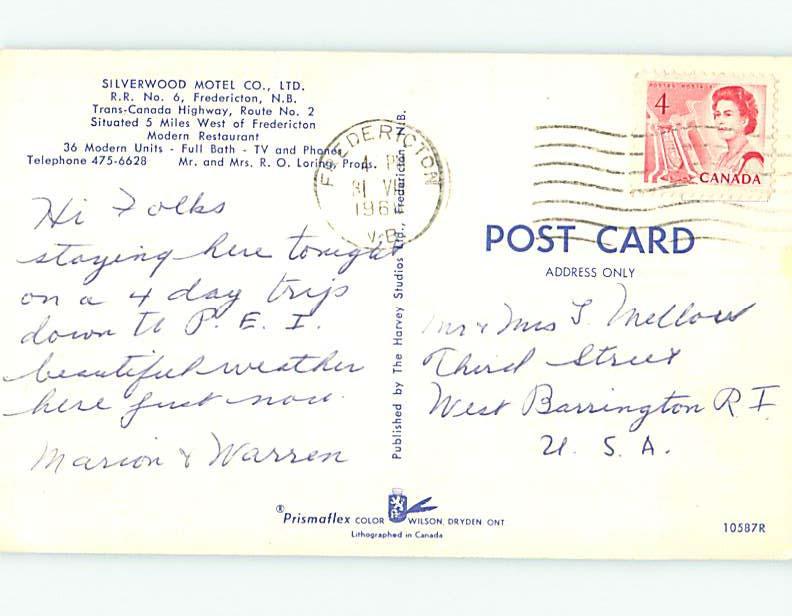 SILVERWOOD MOTEL CO., LTD.
R.R. No. 6, Fredericton, N.B.
Trans-Canada Highway, Route No. 2
Situated 5 Miles West of Fredericton
Modern Restaurant
36 Modern Units - Full Bath - TV and Phones
Telephone 475-6628 Mr. and Mrs. R. O. Loring, Props.
Hi Folks
staying here tonight
on a 4 day trip
down to P. E. I.
beautiful weather
here just now.
Marion & Warren
Published by The Harvey Studios Ltd., Fredericton, N.B.
FREDERICTON
4 P
31 VI
196
N.B.
POSTES POSTAGE
4
CANADA
POST CARD
ADDRESS ONLY
Mr & Mrs
Third Street
West Barrington R I
U. S. A.
®Prismaflex COLOR WILSON, DRYDEN ONT
Lithographed in Canada
10587R